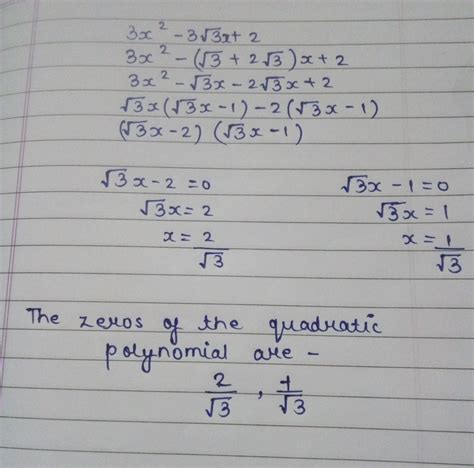 3x² - 3√3x + 2
3x² - (√3 + 2√3)x + 2
3x² - √3x - 2√3x + 2
√3x(√3x - 1) - 2(√3x - 1)
(√3x - 2) (√3x - 1)
√3x - 2 = 0
√3x = 2
x = 2/√3
√3x - 1 = 0
√3x = 1
x = 1/√3
The zeros of the quadratic
polynomial are -
2/√3 , 1/√3